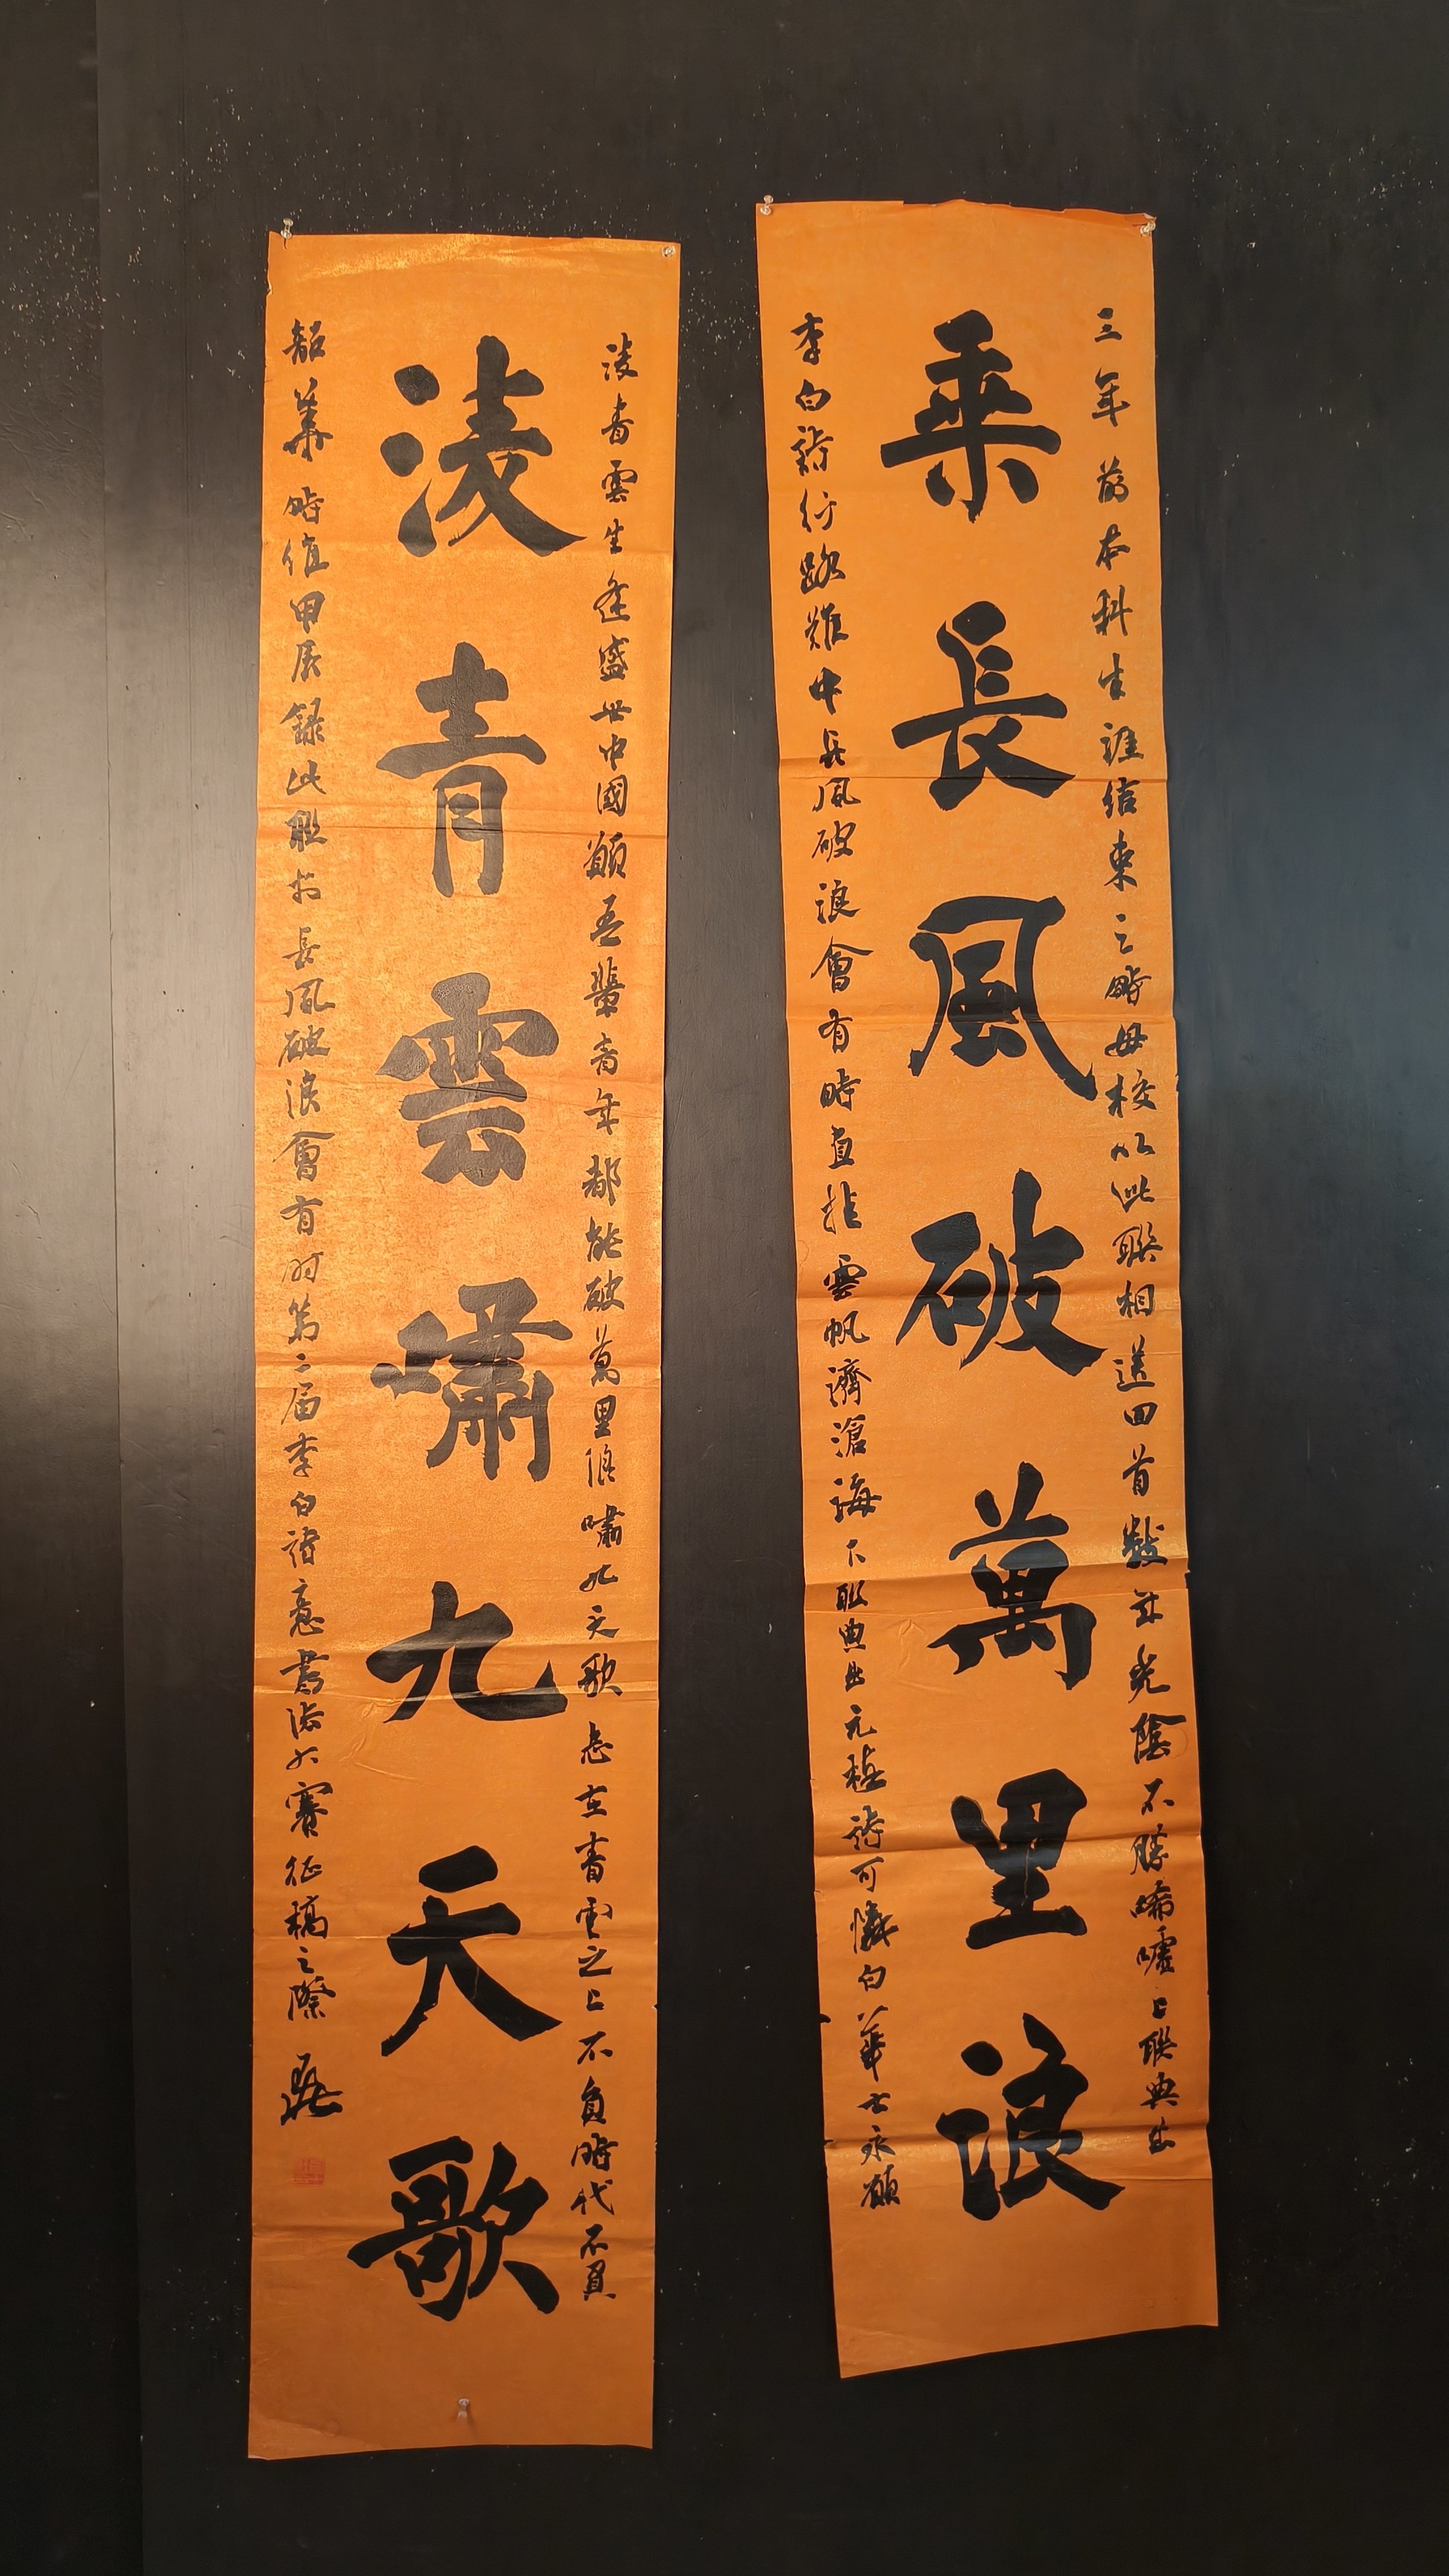 三年前本科生涯結束之時母校以此聯相送回首數年光陰不勝唏噓上聯典出
乘長風破萬里浪
李白詩行路難中長風破浪會有時直掛雲帆濟滄海下聯典出元稹詩可憐白華士永願
淩青雲生逢盛世中國願吾輩青年都能破萬里浪嘯九天歌志在青雲之上不負時代不負
淩青雲嘯九天歌
韶華時值甲辰錄此聯於長風破浪會有时第二届李白詩意書法大賽征稿之際